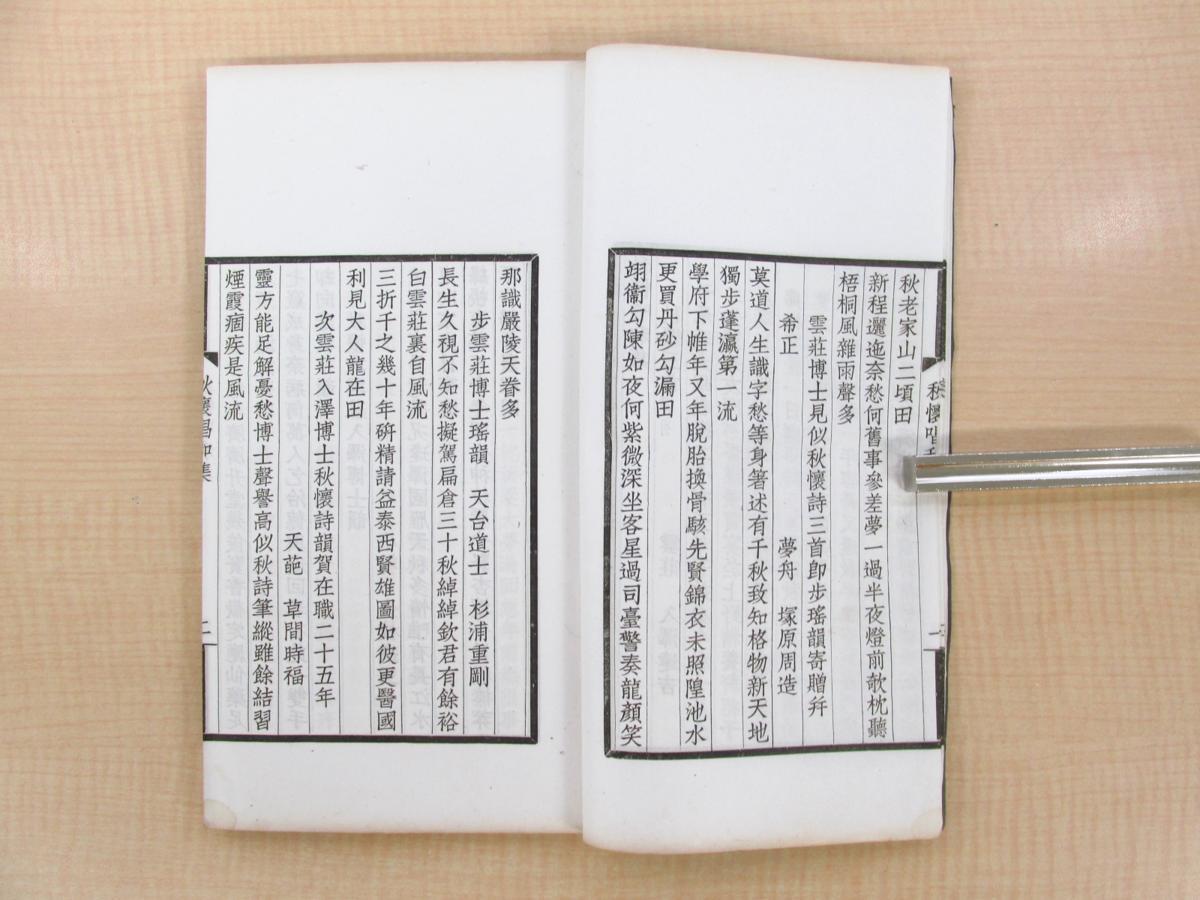 秋老家山二頃田
新程邐迤奈愁何舊事參差夢一過半夜燈前欹枕聽
梧桐風雜雨聲多
雲莊博士見似秋懷詩三首卽步瑤韻寄贈幷
希正　夢舟　塚原周造
莫道人生識字愁等身箸述有千秋致知格物新天地
獨步蓬瀛第一流
學府下帷年又年脫胎換骨駭先賢錦衣未照隍池水
更買丹砂勾漏田
翊衞勾陳如夜何紫微深坐客星過司臺警奏龍顏笑
秋懷唱
二
那識嚴陵天眷多
步雲莊博士瑤韻　天台道士　杉浦重剛
長生久視不知愁擬駕扁倉三十秋綽綽欽君有餘裕
白雲莊裏自風流
三折千之幾十年硏精請益泰西賢雄圖如彼更醫國
利見大人龍在田
次雲莊入澤博士秋懷詩韻賀在職二十五年
天葩　草間時福
靈方能足解憂愁博士聲譽高似秋詩筆縱雖餘結習
煙霞痼疾是風流
秋懷唱和集
二